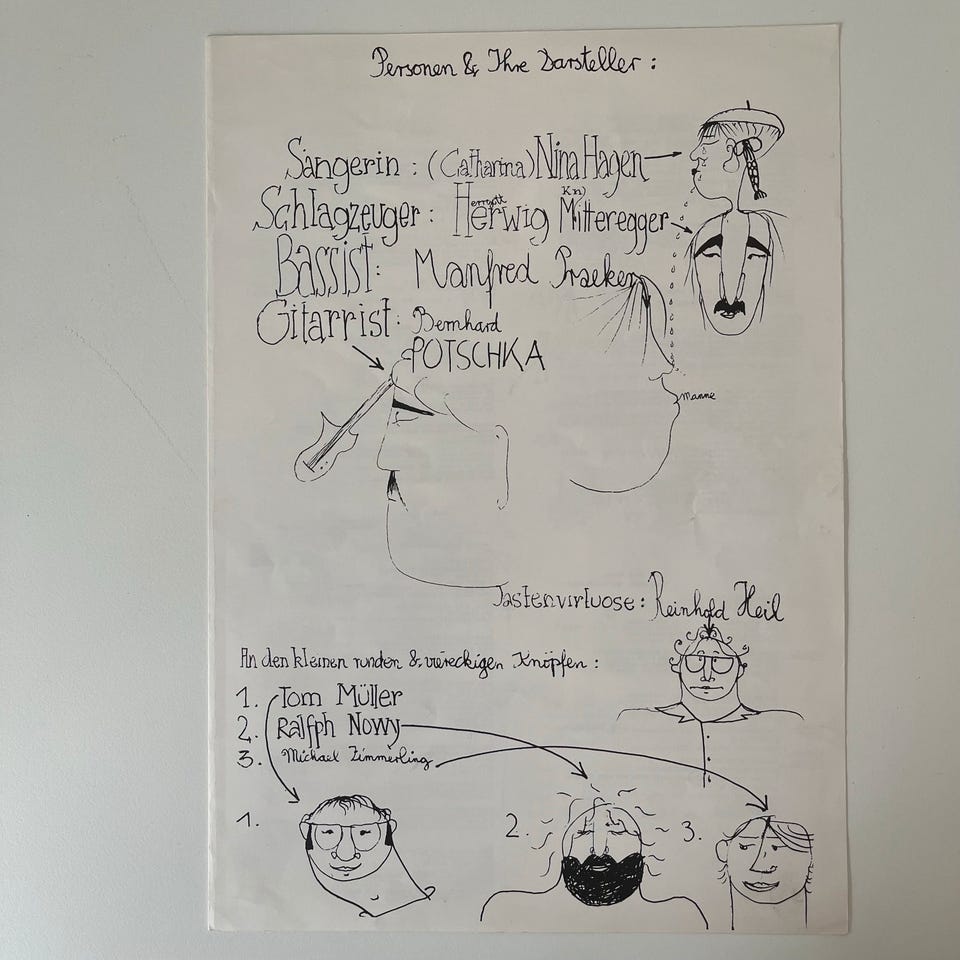 Personen & Ihre Darsteller :
Sängerin : (Catharina) Nina Hagen
Schlagzeuger : Herrgott Herwig Kn) Mitteregger
Bassist : Manfred Praeker
Gitarrist : Bernhard
POTSCHKA
manne
Tastenvirtuose : Reinhold Heil
An den kleinen runden & viereckigen Knöpfen :
1. Tom Müller
2. Ralfph Nowy
3. Michael Zimmerling
1.
2.
3.